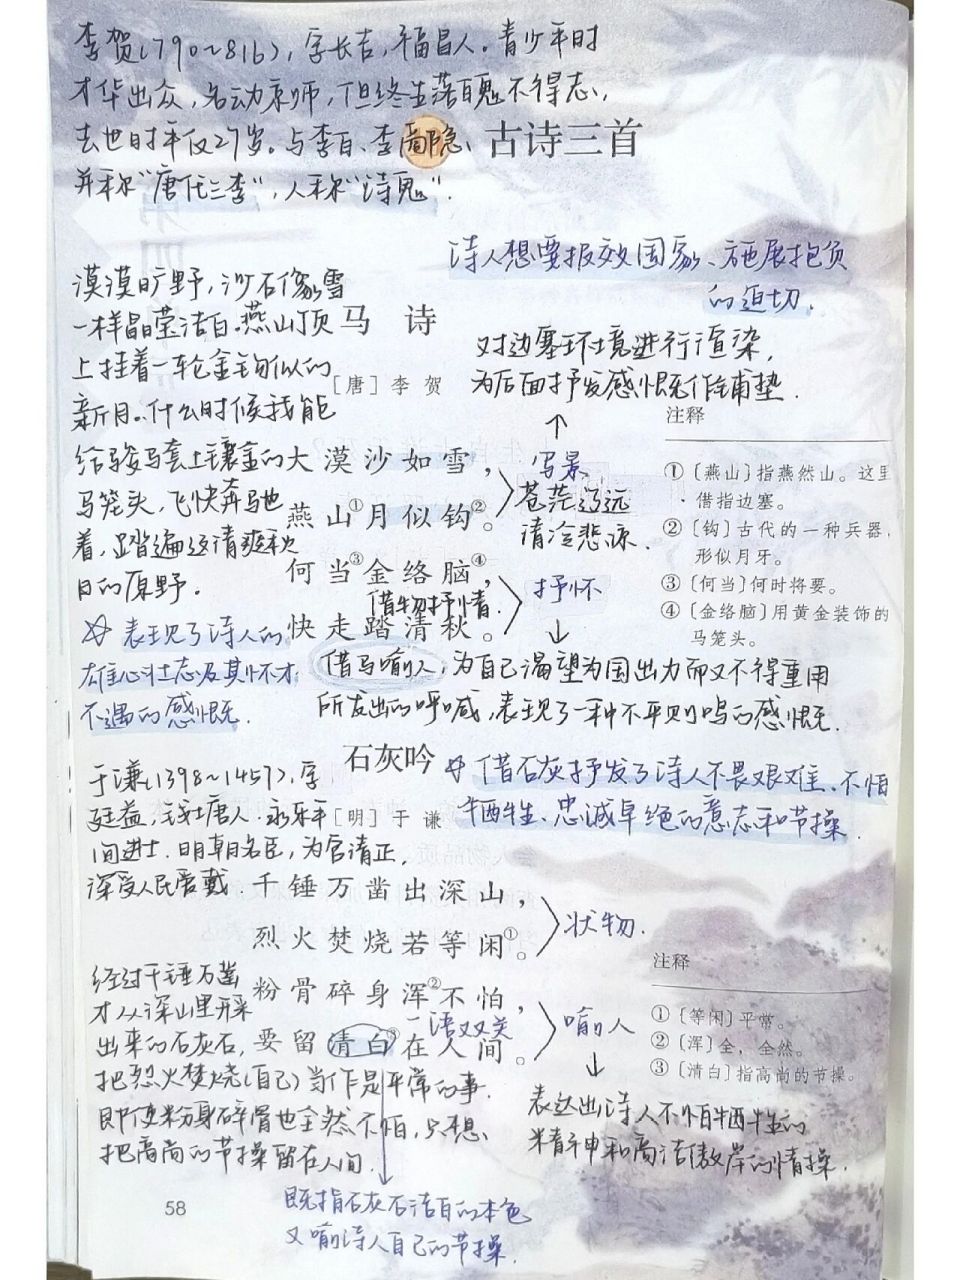 李贺(790~816),字长吉,福昌人。青少年时
才华出众,名动京师,但终生落魄不得志,
去世时年仅27岁。与李白、李商隐
并称“唐代三李”,人称“诗鬼”.
古诗三首
诗人想要报效国家、施展抱负
的迫切.
漠漠旷野,沙石像雪
一样晶莹洁白。燕山顶
上挂着一轮金钩似的
新月。什么时候我能
给骏马套上镶金的
马笼头,飞快奔马地
着,踏遍这清爽秋
日的原野。
马 诗
[唐]李 贺
对边塞环境进行渲染,
为后面抒发感慨作铺垫.
大漠沙如雪,
燕山①月似钩②。
何当③金络脑④,
快走踏清秋。
写景
苍茫辽远
清冷悲凉.
抒怀
借物抒情.
注释
①〔燕山〕指燕然山。这里
借指边塞。
②〔钩〕古代的一种兵器,
形似月牙。
③〔何当〕何时将要。
④〔金络脑〕用黄金装饰的
马笼头。
☆ 表现了诗人的
雄心壮志及其怀才
不遇的感慨.
借马喻人,为自己渴望为国出力而又不得重用
所发出的呼喊,表现了一种不平则鸣的感慨.
石灰吟
☆ 借石灰抒发了诗人不畏艰难、不怕
牺牲、忠诚卓绝的意志和节操.
[明]于 谦
于谦(1398~1457),字
廷益,钱塘人.永乐年
间进士.明朝名臣,为官清正,
深受人民爱戴.
千锤万凿出深山,
烈火焚烧若等闲①。
粉骨碎身浑②不怕,
要留清白③在人间。
状物.
喻人
一语双关
表达出诗人不怕牺牲的
精神和高洁傲岸的情操.
注释
①〔等闲〕平常。
②〔浑〕全,全然。
③〔清白〕指高尚的节操。
经过千锤万凿
才从深山里开采
出来的石灰石,
把烈火焚烧(自己)当作是平常的事.
即使粉身碎骨也全然不怕,只想
把高尚的节操留在人间.
既指石灰石洁白的本色
又喻诗人自己的节操.
58